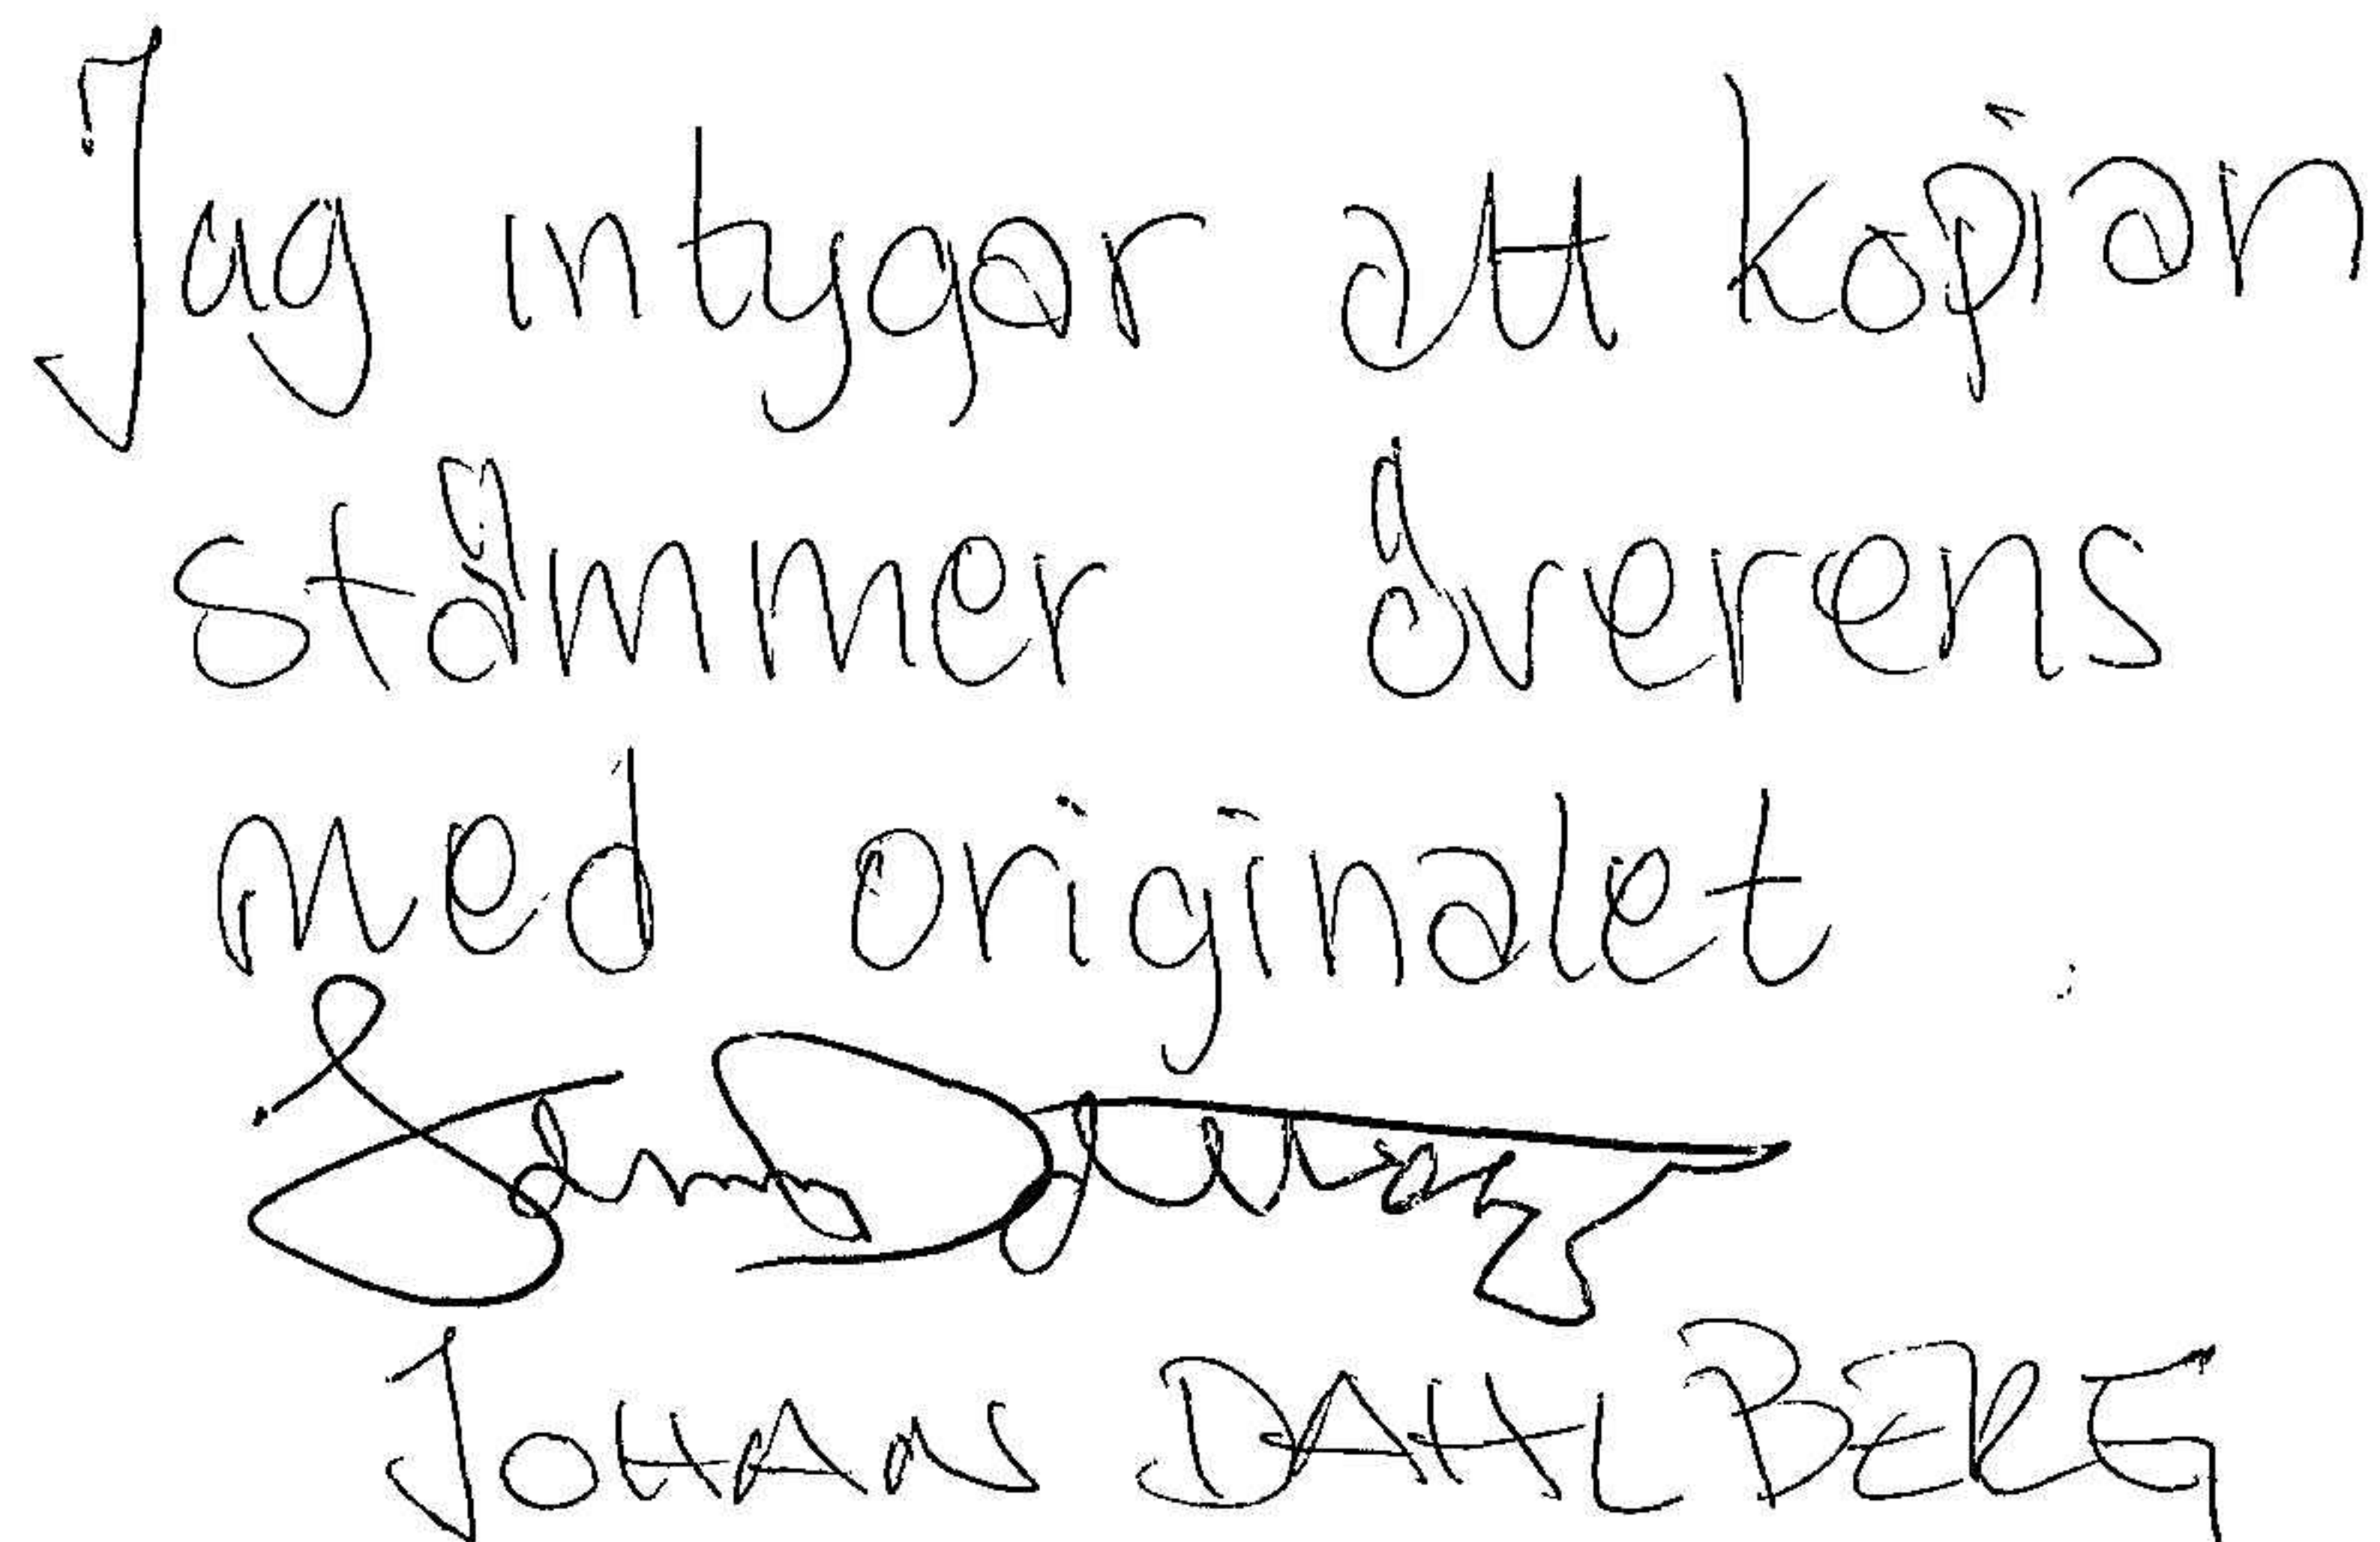 Jag intygar att kopian
stämmer överens
med originalet
JOHAN DAHLBERG